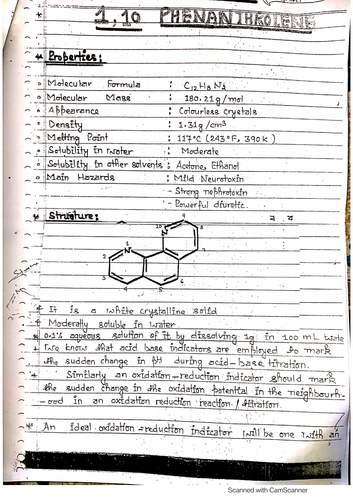 1,10 PHENANTHROLENE
* Properties:
Molecular Formula : C12H8N2
Molecular Mass : 180.21g/mol
Appearance : Colourless crystals
Density : 1.31g/cm³
Melting Point : 117°C (243°F, 390K)
Solubility in water : Moderate
Solubility in other solvents : Acetone, Ethanol
Main Hazards : Mild Neurotoxin
- Strong nephrotoxin
- Powerful diuretic.
* Structure:
9
10 N 8
1
2 N
3
5
* It is a white crystalline solid
* Moderately soluble in water
0.1% aqueous solution of it by dissolving 1g in 100 mL wate
* We know that acid base indicators are employed to mark
the sudden change in pH during acid-base titration.
* Similarly an oxidation-reduction indicator should mark
the sudden change in the oxidation potential in the neighbourh-
-ood in an oxidation reduction reaction / titration.
* An ideal oxidation-reduction indicator will be one with an
Scanned with CamScanner